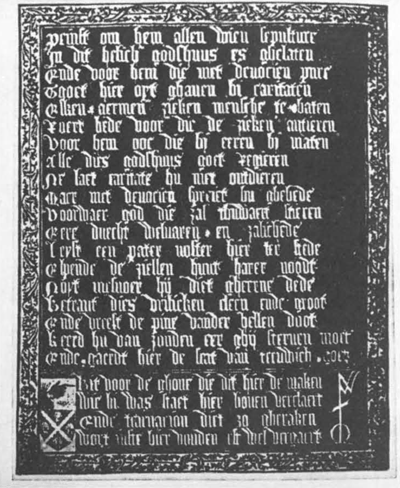 Peinst om hem allen wien sepulture
In dit helich godshuus es ghelaten
Ende voor hem die met devocien pure
Tgoet hier oyt ghaven bi caritaten
Elken aermen zieken mensche te baten
Voert bede voor die de zieken antieren
Voor hem ooc die bi eeren bi maten
Alle dies godshuus goet regieren
Ne laet caritate hu niet
Maer met devocien spreict hu ghebede
Voorwaer god die zal thuwaert stieren
Eere duecht welvaren en zalichede
Leyst een pater noster hier ter stede
de ziellen huut harer noodt
Noyt hij diet gherene dede
dies cleen ende groot
Ende vreest de pine vander hellen doot
Keerd hu van zonden eer ghij sterven moet
Ende gaerdt hier de scat van goet
Bit voor de ghone die dit hier de maken
Wie hi was staet hier boven verclaert
Ende diet zo gheraken
hier houden wel vergaert